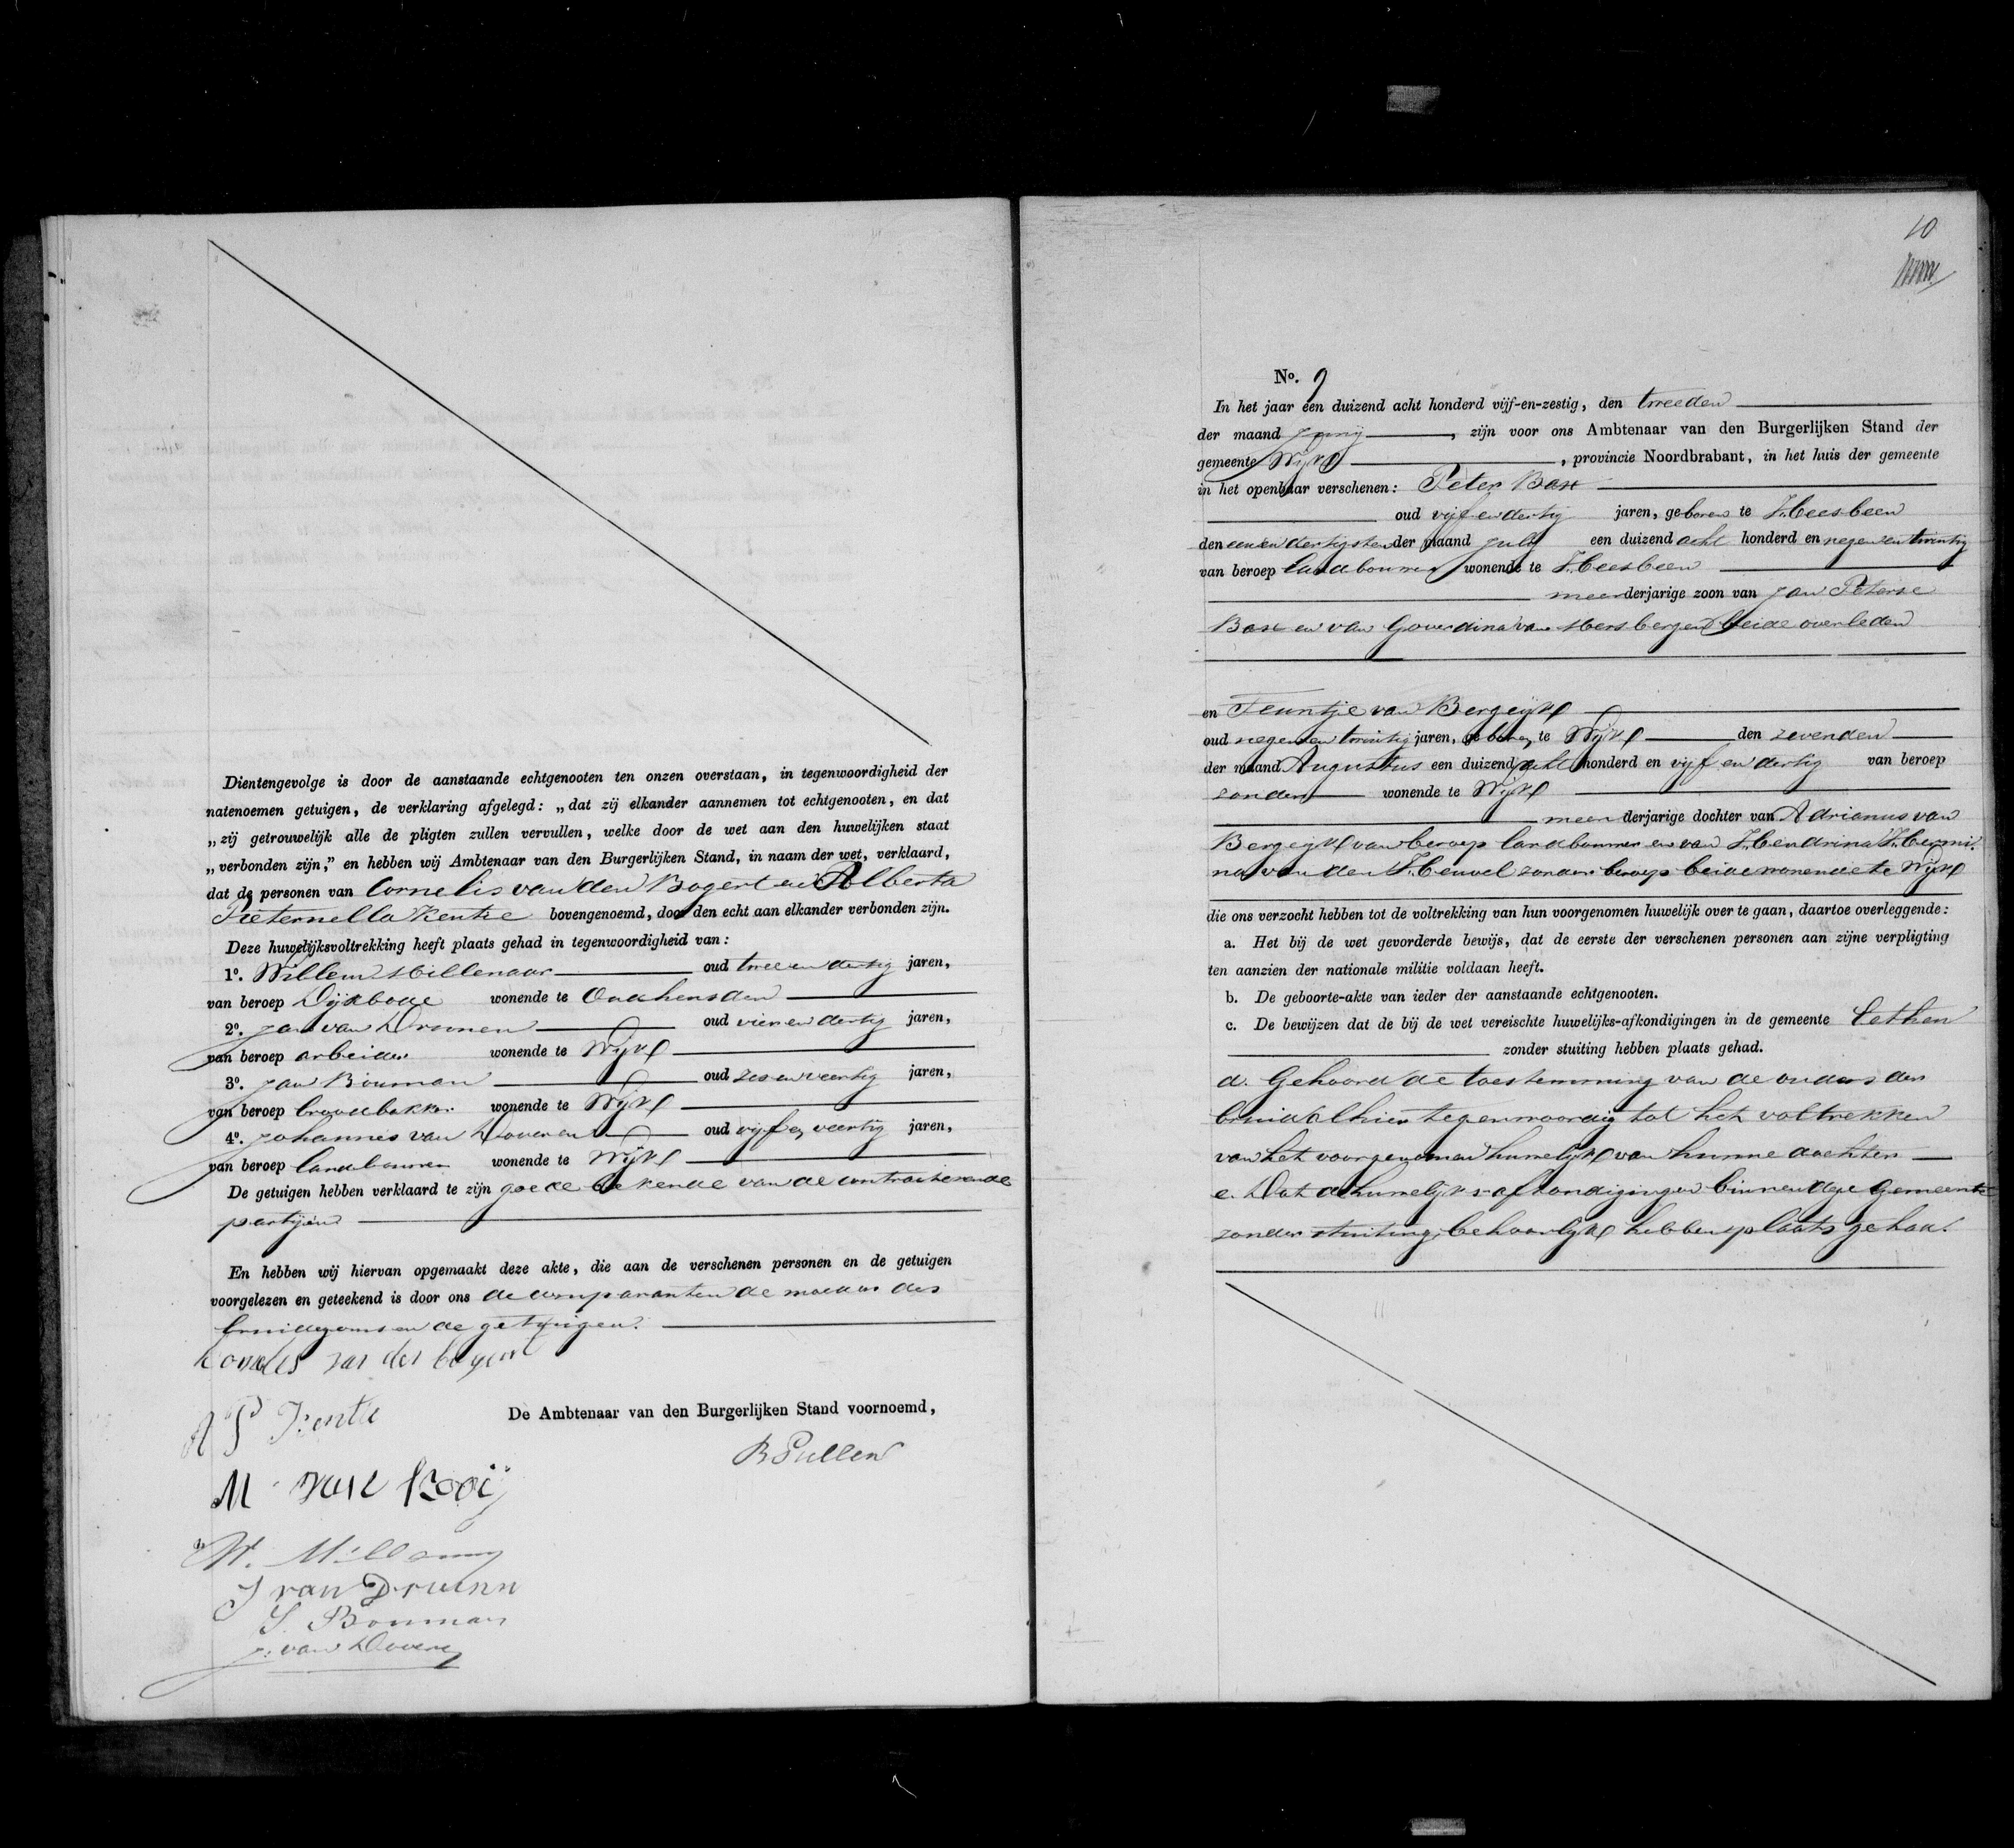 Dientengevolge is door de aanstaande echtgenooten ten onzen overstaan, in tegenwoordigheid der
natenoemen getuigen, de verklaring afgelegd: „dat zij elkander aannemen tot echtgenooten, en dat
„zij getrouwelijk alle de pligten zullen vervullen, welke door de wet aan den huwelijken staat
„verbonden zijn,” en hebben wij Ambtenaar van den Burgerlijken Stand, in naam der wet, verklaard,
dat de personen van Cornelis van den Bogert en Alberta
Pieternella Kentie bovengenoemd, door den echt aan elkander verbonden zijn.
Deze huwelijksvoltrekking heeft plaats gehad in tegenwoordigheid van:
1o. Willem Millenaar oud twee en dertig jaren,
van beroep Dijkbode wonende te Oudheusden
2o. Jan van Drunen oud vier en dertig jaren,
van beroep arbeider wonende te Wijk
3o. Jan Bouman oud zes en veertig jaren,
van beroep broodbakker wonende te Wijk
4o. Johannes van Doveren oud vijf en veertig jaren,
van beroep landbouwer wonende te Wijk
De getuigen hebben verklaard te zijn goede bekende van de contracterende
partijen
En hebben wij hiervan opgemaakt deze akte, die aan de verschenen personen en de getuigen
voorgelezen en geteekend is door ons de comparanten de moeder des
bruidegoms en de getuigen.
van den bogert
A P Kentie
De Ambtenaar van den Burgerlijken Stand voornoemd,
B Pullen
M van Booij
W. Millenaar
J van Drunen
J. Bouman
J. van Doveren
10
No. 9
In het jaar een duizend acht honderd vijf-en-zestig, den tweeden
der maand Junij, zijn voor ons Ambtenaar van den Burgerlijken Stand der
gemeente Wijk, provincie Noordbrabant, in het huis der gemeente
in het openbaar verschenen: Peter Bax
oud vijf en dertig jaren, geboren te Heesbeen
den een en dertigsten der maand July een duizend acht honderd en negen en twintig
van beroep landbouwer wonende te Heesbeen
meerderjarige zoon van Jan Peterse
Bax en van Goverdina van Mersbergen beide overleden
en Teuntje van Bergeijk
oud negen en twintig jaren, geboren te Wijk den zevenden
der maand Augustus een duizend acht honderd en vijf en dertig van beroep
zonder wonende te Wijk
meerderjarige dochter van Adrianus van
Bergeijk van beroep landbouwer en van Hendrina Hermi¬
na van den Heuvel zonder beroep beide wonende te Wijk
die ons verzocht hebben tot de voltrekking van hun voorgenomen huwelijk over te gaan, daartoe overleggende:
a. Het bij de wet gevorderde bewijs, dat de eerste der verschenen personen aan zijne verpligting
ten aanzien der nationale militie voldaan heeft.
b. De geboorte-akte van ieder der aanstaande echtgenooten.
c. De bewijzen dat de bij de wet vereischte huwelijks-afkondigingen in de gemeente Eethen
zonder stuiting hebben plaats gehad.
d. Gehoord de toestemming van de ouders der
bruid alhier tegenwoordig tot het voltrekken
van het voorgenomen huwelijk van hunne dochter
e. Dat de huwelijks afkondigingen binnen deze Gemeente
zonder stuiting behoorlijk hebben plaats gehad.